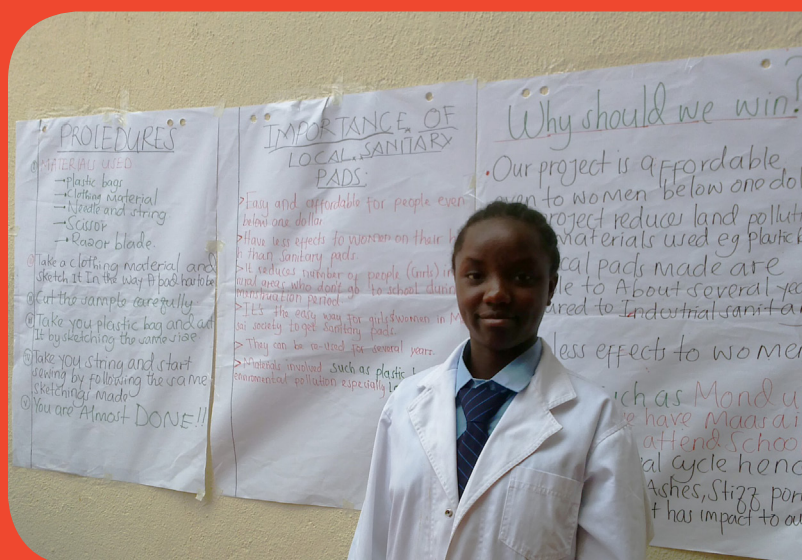 PROCEDURES
① MATERIALS USED
→ plastic bags
→ Klothing Material
→ Needle and string
→ Scissor
→ Razor blade.
Take a clothing material and
sketch It In the way A pad has to be
Cut the sample carefully
Take you plastic bag and cut
It by sketching the same size
Take you string and start
sewing by following the same
sketchings made
You are Almost DONE!!
IMPORTANCE OF
LOCAL SANITARY
PADS:
> Easy and affordable for people even
below one dollar
> Have less effects to women on their
h than sanitary pads.
> It reduces number of people (Girls) in
rural areas who don't go to school durin
menstruation period
> It's the easy way for girls & women in M
sai society to get sanitary pads.
> They can be re-used for several years.
> Materials involved such as plastic b
environmental pollution especially
Why should we win?
• Our project is affordable
even to women below one dol
project reduces land polluti
materials used eg Plastic b
cal pads made are
le to About several yea
ured to Industrial sanita
less effects to women
such as Mondu
we have Maasai
attend School
al cycle henc
Ashes, Stigg por
t has impact to ou